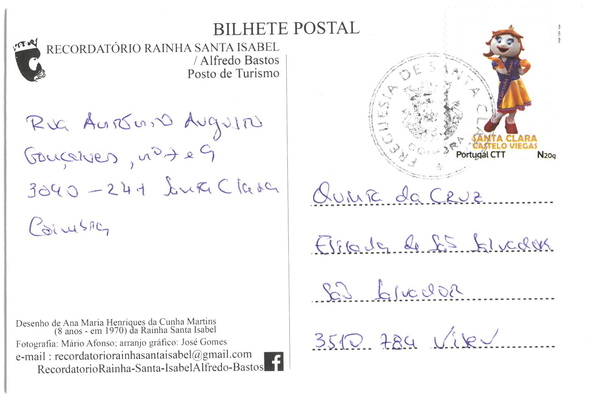 BILHETE POSTAL
RECORDATÓRIO RAINHA SANTA ISABEL
/ Alfredo Bastos
Posto de Turismo
Rua António Augusto
Gonçalves, nº 7 e 9
3040 - 241 Santa Clara
Coimbra
Desenho de Ana Maria Henriques da Cunha Martins
(8 anos - em 1970) da Rainha Santa Isabel
Fotografia: Mário Afonso; arranjo gráfico: José Gomes
e-mail : recordatoriorainhasantaisabel@gmail.com
RecordatorioRainha-Santa-IsabelAlfredo-Bastos
FREGUESIA DE SANTA CLARA
COIMBRA
SANTA CLARA
CASTELO VIEGAS
Portugal CTT N20g
Quinta da Cruz
Estrada de São Salvador
São Salvador
3510 784 Viseu